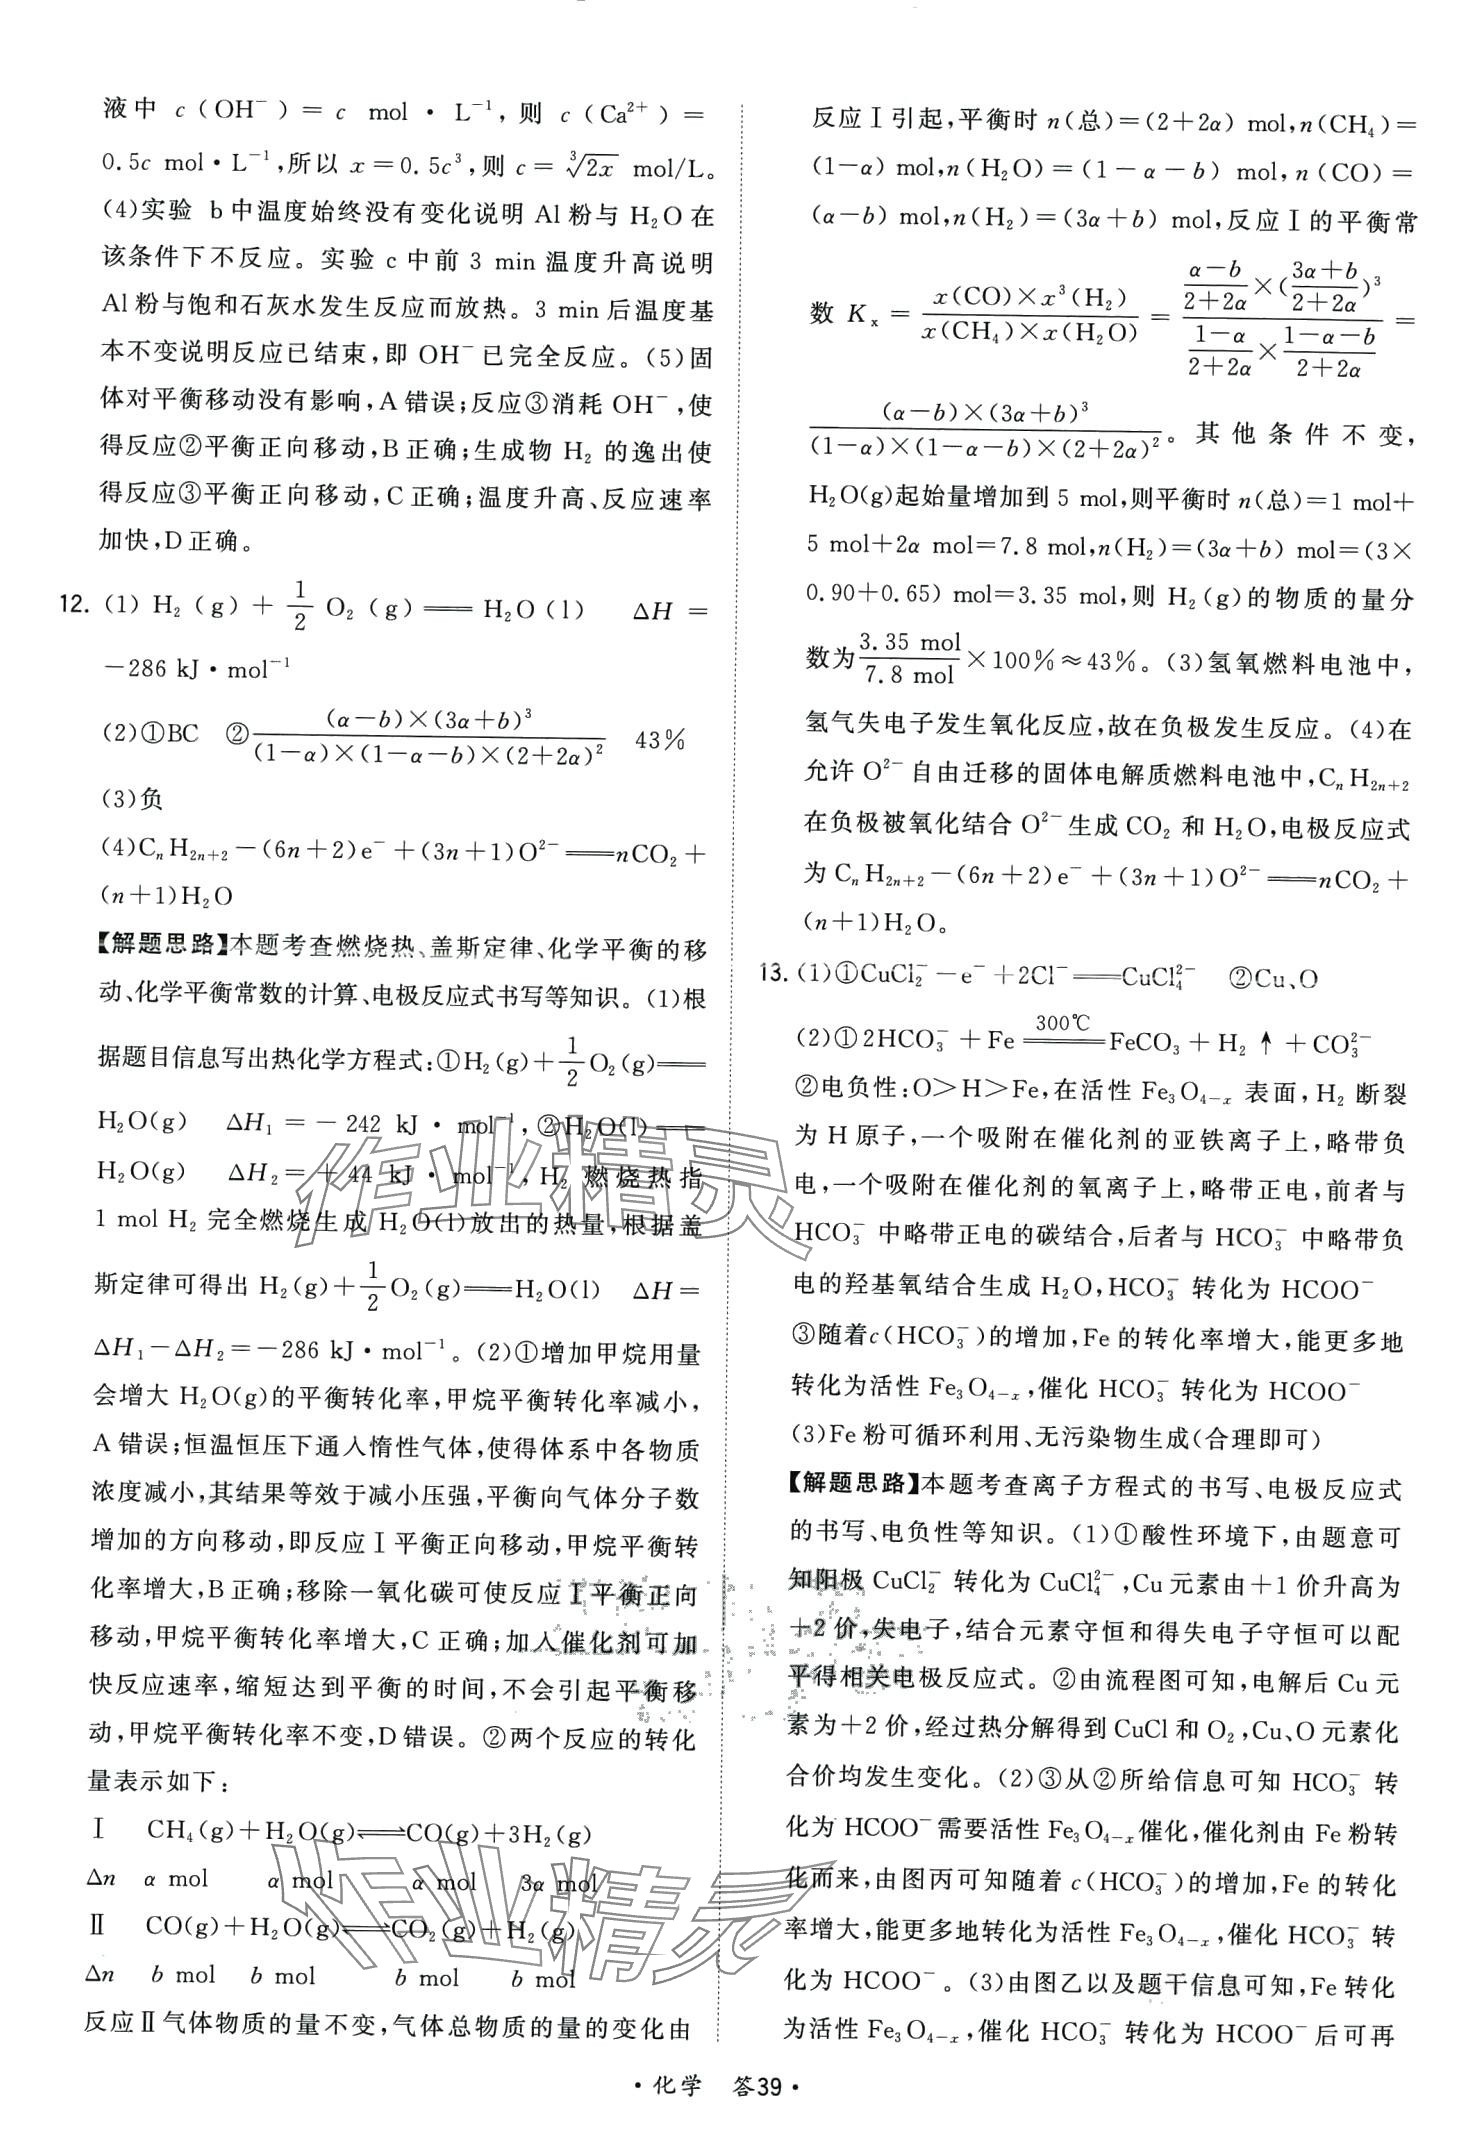 液中 c(OH⁻)=c mol·L⁻¹,则 c(Ca²⁺)=
0.5c mol·L⁻¹,所以 x=0.5c³,则 c=∛2x mol/L。
(4)实验 b中温度始终没有变化说明 Al粉与 H₂O在
该条件下不反应。实验 c中前 3 min温度升高说明
Al粉与饱和石灰水发生反应而放热。3 min后温度基
本不变说明反应已结束,即 OH⁻已完全反应。(5)固
体对平衡移动没有影响,A错误;反应③消耗 OH⁻,使
得反应②平衡正向移动,B正确;生成物 H₂ 的逸出使
得反应③平衡正向移动,C正确;温度升高、反应速率
加快,D正确。
12. (1) H₂(g)+1/2 O₂(g)══H₂O(l) ΔH=
−286 kJ·mol⁻¹
(2)①BC ②(α−b)×(3α+b)³/(1−α)×(1−α−b)×(2+2α)² 43%
(3)负
(4)CₙH₂ₙ₊₂−(6n+2)e⁻+(3n+1)O²⁻══nCO₂+
(n+1)H₂O
【解题思路】本题考查燃烧热、盖斯定律、化学平衡的移
动、化学平衡常数的计算、电极反应式书写等知识。(1)根
据题目信息写出热化学方程式:①H₂(g)+1/2 O₂(g)══
H₂O(g) ΔH₁=−242 kJ·mol⁻¹,②H₂O(l)══
H₂O(g) ΔH₂=+44 kJ·mol⁻¹,H₂ 燃烧热指
1 mol H₂ 完全燃烧生成 H₂O(l)放出的热量,根据盖
斯定律可得出 H₂(g)+1/2 O₂(g)══H₂O(l) ΔH=
ΔH₁−ΔH₂=−286 kJ·mol⁻¹。(2)①增加甲烷用量
会增大 H₂O(g)的平衡转化率,甲烷平衡转化率减小,
A错误;恒温恒压下通入惰性气体,使得体系中各物质
浓度减小,其结果等效于减小压强,平衡向气体分子数
增加的方向移动,即反应Ⅰ平衡正向移动,甲烷平衡转
化率增大,B正确;移除一氧化碳可使反应Ⅰ平衡正向
移动,甲烷平衡转化率增大,C正确;加入催化剂可加
快反应速率,缩短达到平衡的时间,不会引起平衡移
动,甲烷平衡转化率不变,D错误。②两个反应的转化
量表示如下:
Ⅰ CH₄(g)+H₂O(g)⇌CO(g)+3H₂(g)
Δn α mol α mol α mol 3α mol
Ⅱ CO(g)+H₂O(g)⇌CO₂(g)+H₂(g)
Δn b mol b mol b mol b mol
反应Ⅱ气体物质的量不变,气体总物质的量的变化由
反应Ⅰ引起,平衡时 n(总)=(2+2α) mol,n(CH₄)=
(1−α) mol,n(H₂O)=(1−α−b) mol,n(CO)=
(α−b) mol,n(H₂)=(3α+b) mol,反应Ⅰ的平衡常
数 Kₓ=x(CO)×x³(H₂)/x(CH₄)×x(H₂O)=(α−b/2+2α×(3α+b/2+2α)³)/(1−α/2+2α×1−α−b/2+2α)=
(α−b)×(3α+b)³/(1−α)×(1−α−b)×(2+2α)²。其他条件不变,
H₂O(g)起始量增加到 5 mol,则平衡时 n(总)=1 mol+
5 mol+2α mol=7.8 mol,n(H₂)=(3α+b) mol=(3×
0.90+0.65) mol=3.35 mol,则 H₂(g)的物质的量分
数为3.35 mol/7.8 mol×100%≈43%。(3)氢氧燃料电池中,
氢气失电子发生氧化反应,故在负极发生反应。(4)在
允许 O²⁻自由迁移的固体电解质燃料电池中,CₙH₂ₙ₊₂
在负极被氧化结合 O²⁻生成 CO₂ 和 H₂O,电极反应式
为 CₙH₂ₙ₊₂−(6n+2)e⁻+(3n+1)O²⁻══nCO₂+
(n+1)H₂O。
13. (1)①CuCl₂⁻−e⁻+2Cl⁻══CuCl₄²⁻ ②Cu、O
(2)①2HCO₃⁻+Fe═300℃═FeCO₃+H₂↑+CO₃²⁻
②电负性:O>H>Fe,在活性 Fe₃O₄₋ₓ 表面,H₂ 断裂
为 H原子,一个吸附在催化剂的亚铁离子上,略带负
电,一个吸附在催化剂的氧离子上,略带正电,前者与
HCO₃⁻ 中略带正电的碳结合,后者与 HCO₃⁻ 中略带负
电的羟基氧结合生成 H₂O,HCO₃⁻ 转化为 HCOO⁻
③随着c(HCO₃⁻)的增加,Fe的转化率增大,能更多地
转化为活性 Fe₃O₄₋ₓ,催化 HCO₃⁻ 转化为 HCOO⁻
(3)Fe粉可循环利用、无污染物生成(合理即可)
【解题思路】本题考查离子方程式的书写、电极反应式
的书写、电负性等知识。(1)①酸性环境下,由题意可
知阳极 CuCl₂⁻ 转化为 CuCl₄²⁻,Cu元素由+1价升高为
+2价,失电子,结合元素守恒和得失电子守恒可以配
平得相关电极反应式。②由流程图可知,电解后 Cu元
素为+2价,经过热分解得到 CuCl和 O₂,Cu、O元素化
合价均发生变化。(2)③从②所给信息可知 HCO₃⁻ 转
化为 HCOO⁻需要活性 Fe₃O₄₋ₓ催化,催化剂由 Fe粉转
化而来,由图丙可知随着 c(HCO₃⁻)的增加,Fe的转化
率增大,能更多地转化为活性 Fe₃O₄₋ₓ,催化 HCO₃⁻ 转
化为 HCOO⁻。(3)由图乙以及题干信息可知,Fe转化
为活性 Fe₃O₄₋ₓ,催化 HCO₃⁻ 转化为 HCOO⁻后可再
·化学 答39·
作业精灵
作业精灵